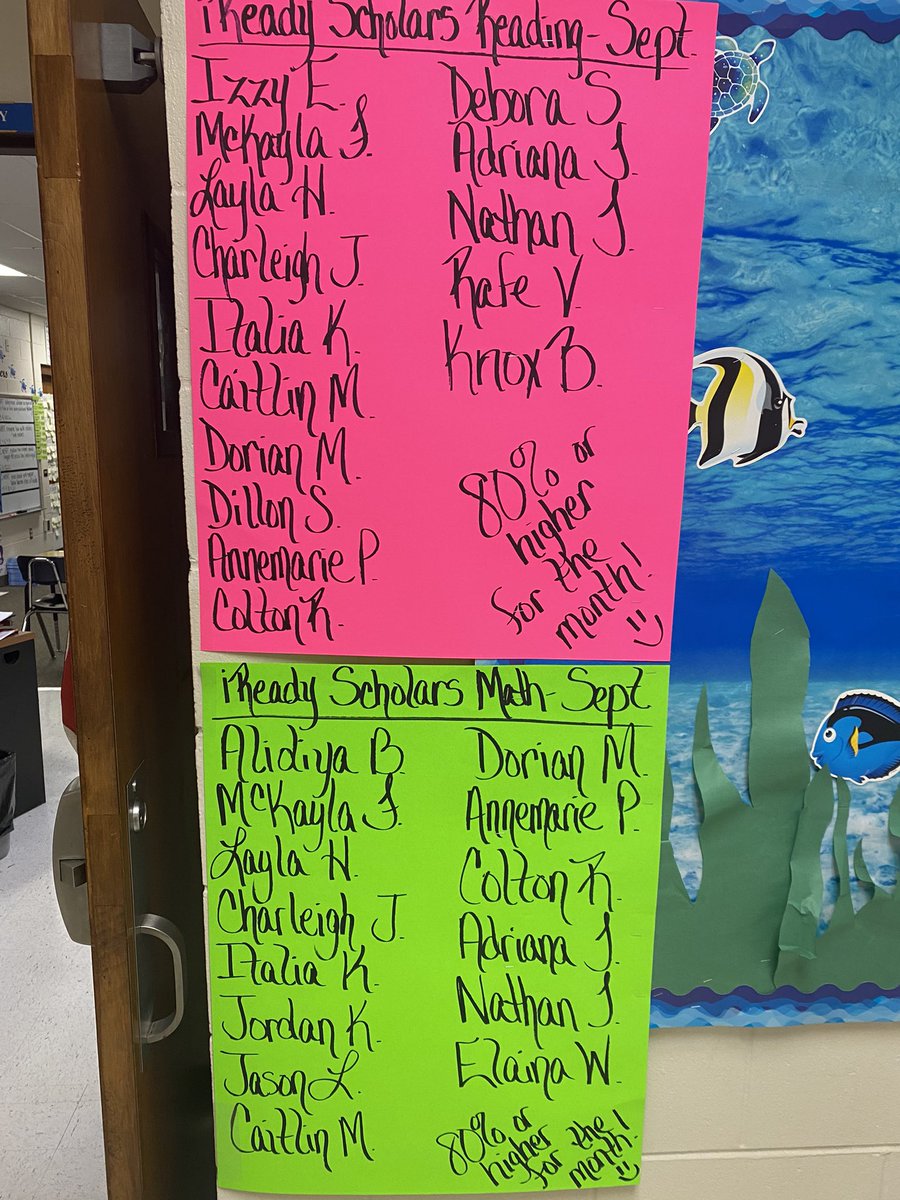 iReady Scholars Reading - Sept.
Izzy E.
McKayla J.
Layla H.
Charleigh J.
Italia K.
Caitlin M.
Dorian M.
Dillon S.
Annemarie P.
Colton R.
Debora S.
Adriana J.
Nathan J.
Rafe V.
Knox B.
80% or
higher
for the
month!
iReady Scholars Math - Sept
Alidiya B.
McKayla J.
Layla H.
Charleigh J.
Italia K.
Jordan K.
Jason L.
Caitlin M.
Dorian M.
Annemarie P.
Colton R.
Adriana J.
Nathan J.
Elaina W.
80% or
higher
for the
month!